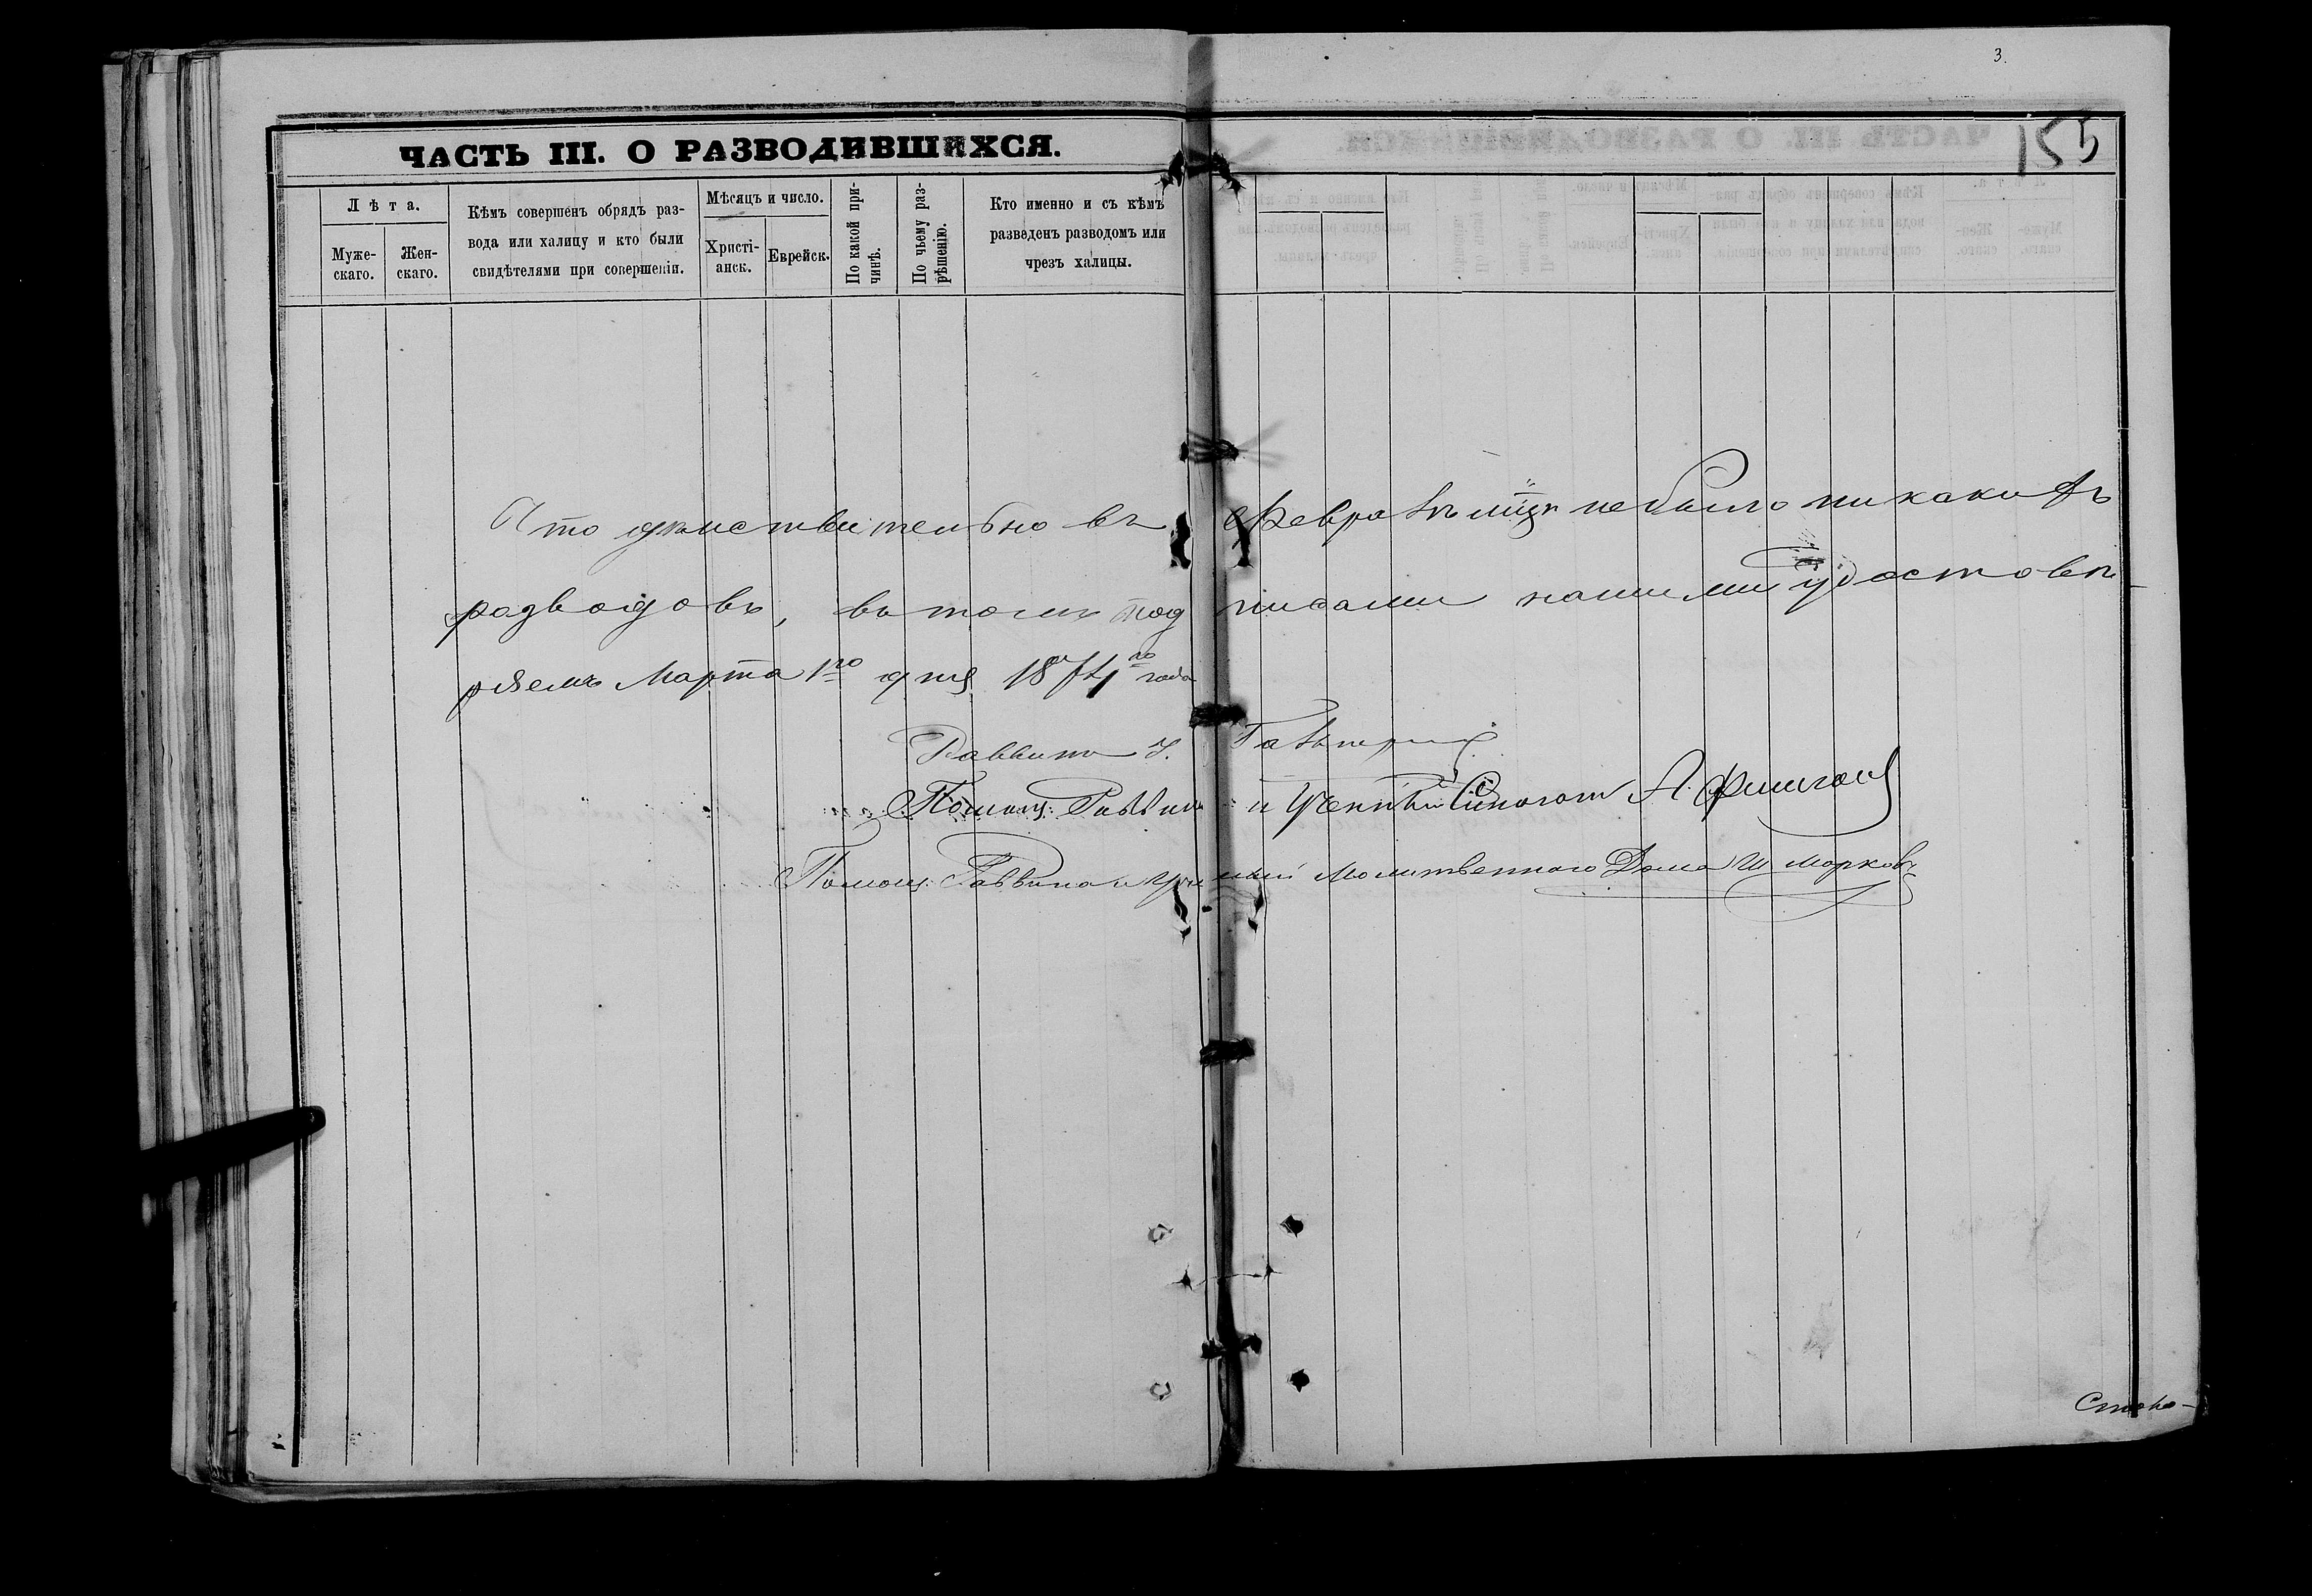 3.
155
ЧАСТЬ III. О РАЗВОДИВШИХСЯ.
Лѣта.
Муже-
скаго.
Жен-
скаго.
Кѣмъ совершенъ обрядъ раз-
вода или халицу и кто были
свидѣтелями при совершеніи.
Мѣсяцъ и число.
Христі-
анск.
Еврейск.
По какой при-
чинѣ.
По чьему раз-
рѣшенію.
Кто именно и съ кѣмъ
разведенъ разводомъ или
чрезъ халицы.
Что действительно въ Февралѣ м-цѣ небыло никакихъ
разводовъ, въ томъ подписами нашими удостовѣ-
ряемъ Марта 1го дня 1874го года
Раввинъ
Помощ: Раввина и Ученый Синагоги А. Фишгоц
Помощ: Раввина и Ученый Молитвеннаго Дома Ш Марковъ